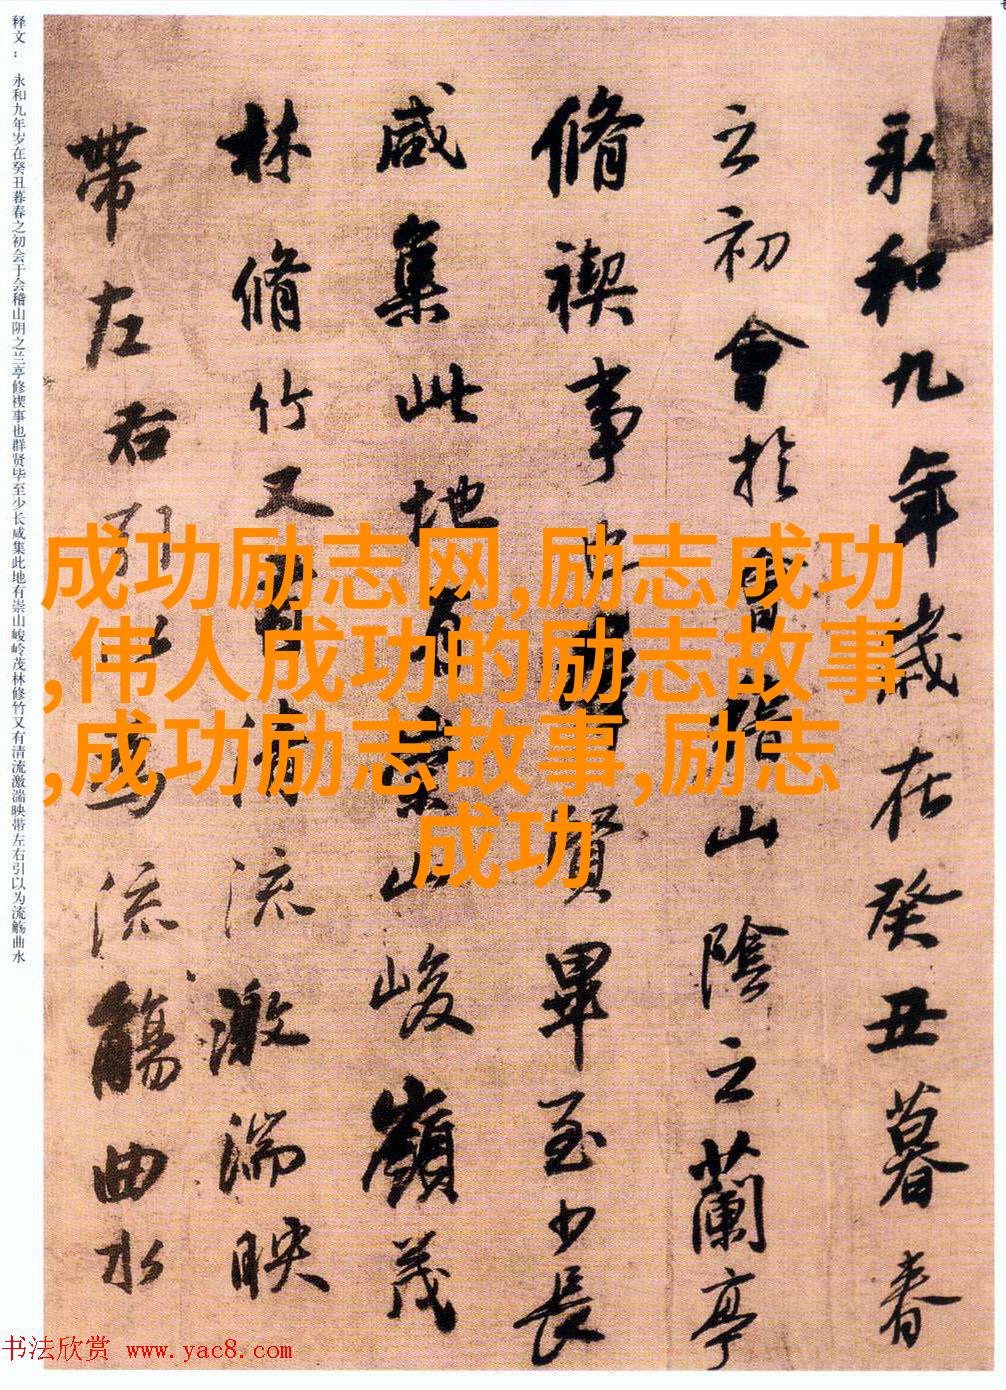 永和九年歲在癸丑暮春
之初會於會稽山陰之蘭亭
脩禊事也群賢畢至少長
咸集此地有崇山峻嶺茂
林脩竹又有清流激湍映
帶左右引以為流觴曲水
释文：永和九年岁在癸丑暮春之初会于会稽山阴之兰亭修禊事也群贤毕至少长咸集此地有崇山峻岭茂林修竹又有清流激湍映带左右引以为流觞曲水
成功励志网,励志成功
,伟人成功的励志故事
,成功励志故事,励志
成功
书法欣赏 www.yac8.com